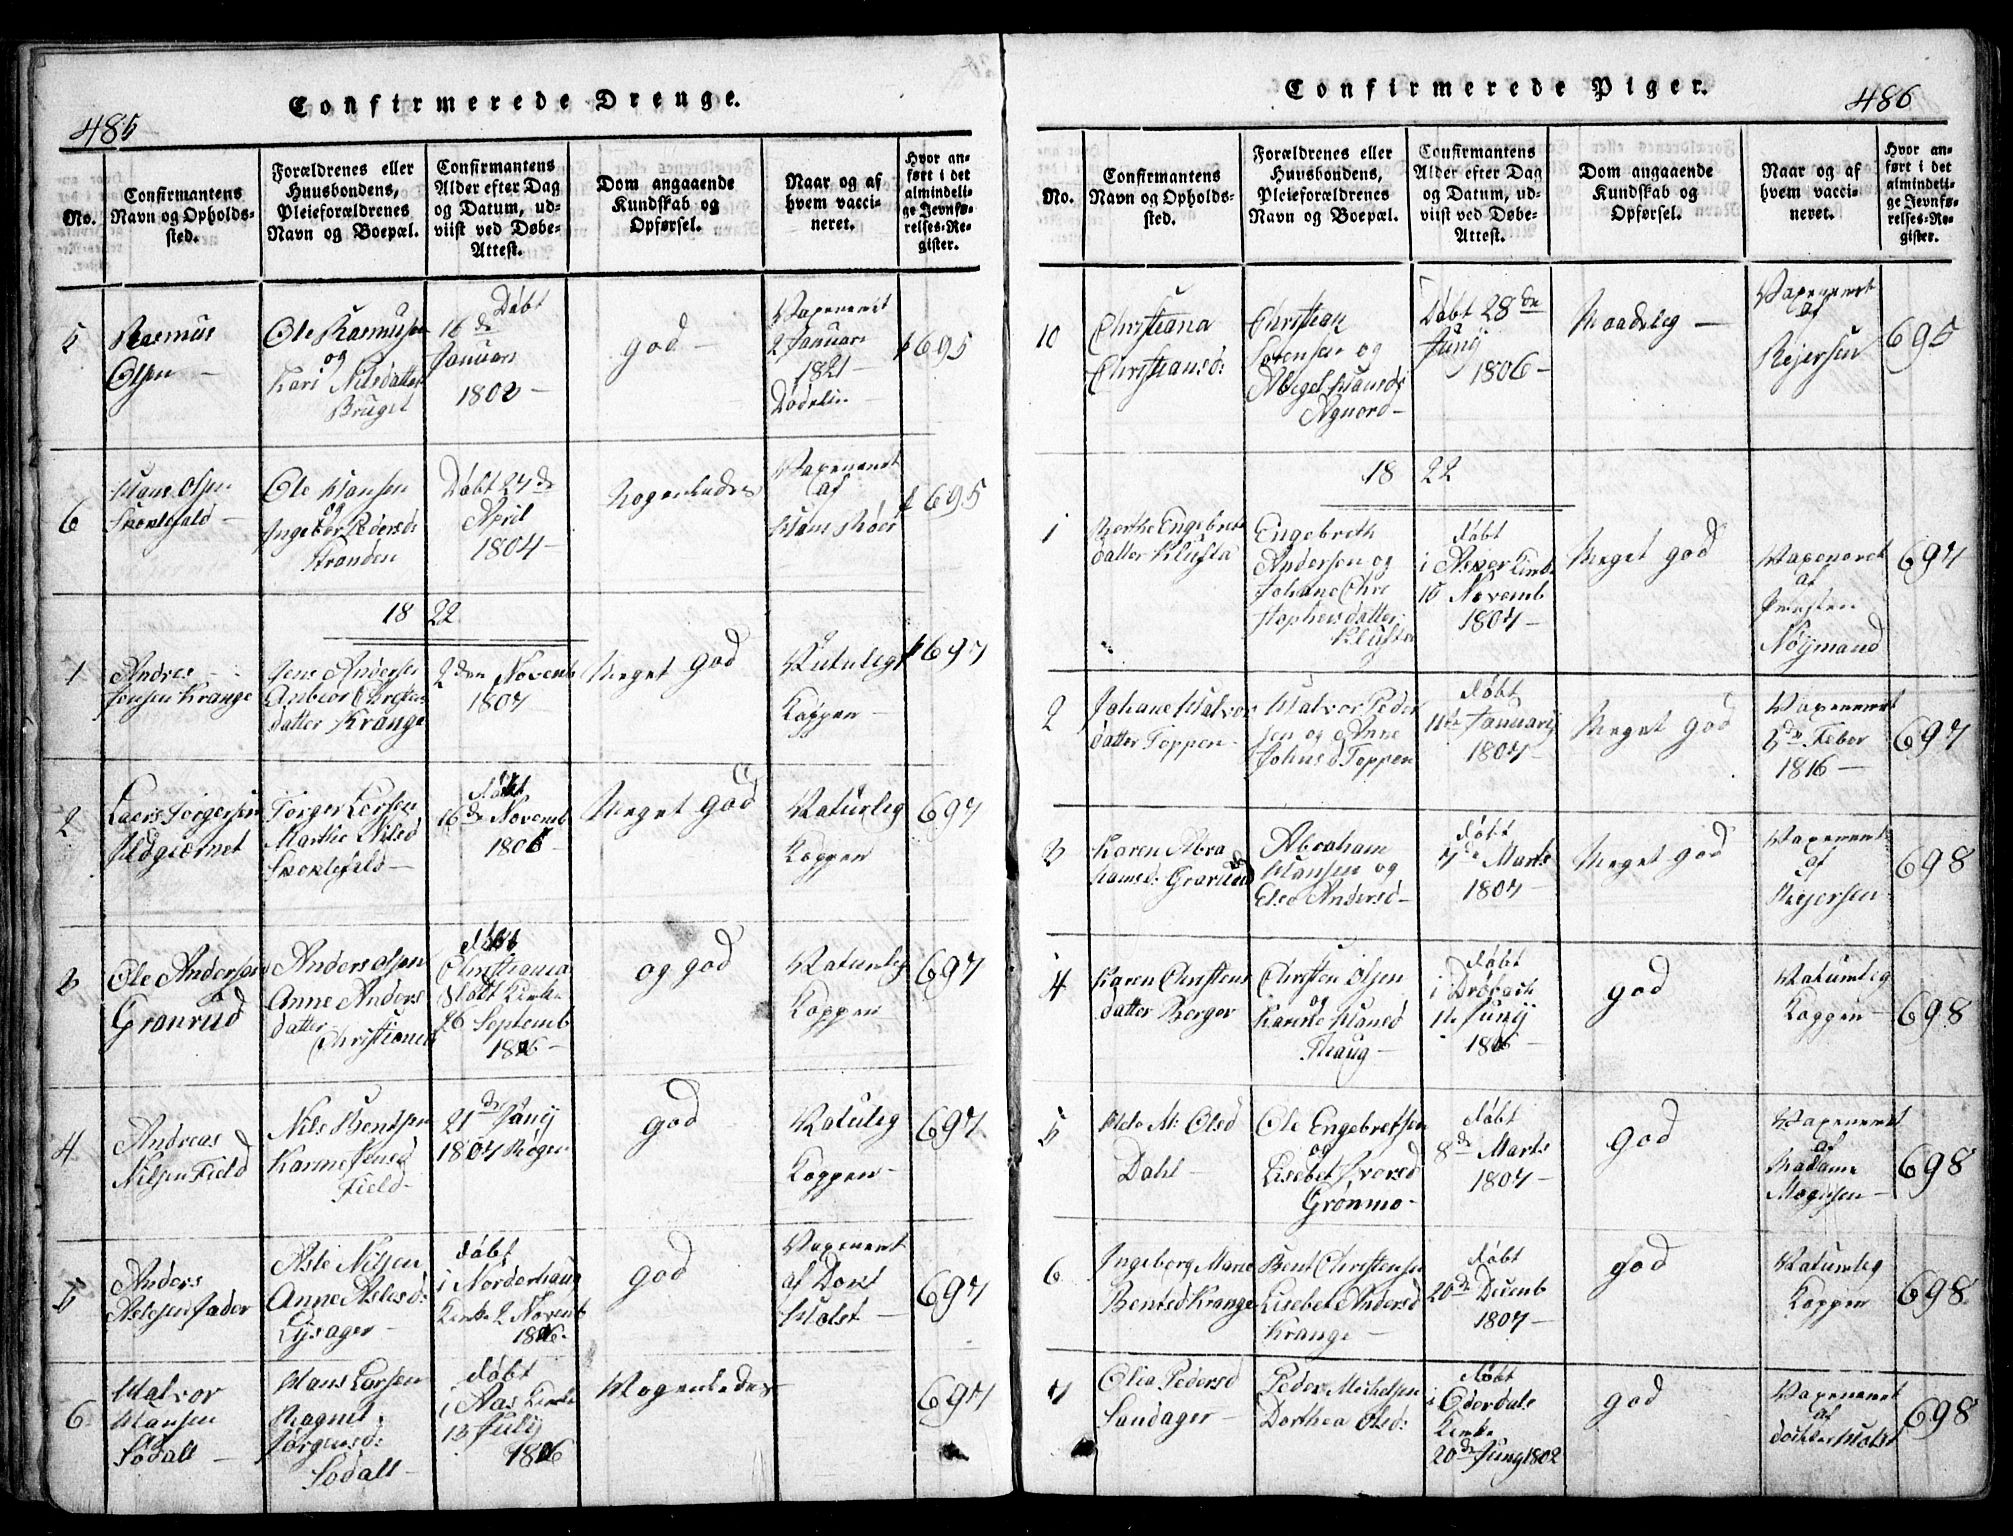 485
Confirmerede Drenge.
No.
Confirmantens
Navn og Opholds-
sted.
Forældrenes eller
Huusbondens,
Pleieforældrenes
Navn og Boepæl.
Confirmantens
Alder efter Dag
og Datum, ud-
viist ved Døbe-
Attest.
Dom angaaende
Kundskab og
Opførsel.
Naar og af
hvem vacci-
neret.
Hvor an-
ført i det
almindeli-
ge Jevnfø-
relses-Re-
gister.
5
Rasmus
Olsen
Ole Rasmusen
og
Kari Nilsdatter
Bruget
Døbt
16 de
Januari
1802
god
Vaxeneret
2 Januari
1821
695
6
Hans Olsen
Skoklefald
Ole Hansen
og
Ingebor Pedersd:
Stranden
Døbt 24 de
April
1804
Nogenledes
Vaxeneret
af
695
18 22
1
Andres
Jensen Krange
Jens Andersen
Anbior Christens
datter Krange
2 den Novemb
1807
Meget god
Natuligt
Kopper
697
2
Laers Torgersen
Torger Larsen
Marthe Nilsd
Skoklefald
døbt
16 de Novemb
1806
Meget god
Naturlig
Kopper
697
3
Ole Andersen
Granrud
Anders Olsen
Anne Anders
datter
døbt
Christiania
Slott Kirke
26 Septemb
1806
og god
Naturlig
Kopper
697
4
Andreas
Nilsen Field
Nils Bentsen
Karine Jensd
Field
21 de Junij
1807
god
Natulig
Kopper
697
5
Anders
Aslesen Jader
Asle Nilsen
Anne Aslesd:
Lysager
døbt
i Norderhaug
Kirke 2 Novemb
1806
god
Vaxeneret
af Dokt
Holst
697
6
Halvor
Hansen
Sødall
Hans Larsen
Ragnil
Jørgensd:
Sødall
døbt
i Aas Kirke
13 Julij
1806
Nogenledes
697
Confirmerede Piger.
486
No.
Confirmantens
Navn og Opholds-
sted.
Forældrenes eller
Huusbondens,
Pleieforældrenes
Navn og Boepæl.
Confirmantens
Alder efter Dag
og Datum, ud-
viist ved Døbe-
Attest.
Dom angaaende
Kundskab og
Opførsel.
Naar og af
hvem vacci-
neret.
Hvor an-
ført i det
almindeli-
ge Jevnfø-
relses-Re-
gister.
10
Christiana
Christiansd:
Christian
Sørensen og
Abegel Hansd:
Agnord
Døbt 28 de
Junij
1806
Maadelig
Vaxeneret
af
Rejersen
695
18 22
1
Berthe Engebret
datter Klufta
Engebreth
Andersen og
Johane Chri
stophersdatter
Klufta
døbt
i Asker Kirke
15 Novemb
1807
Meget god
Vaxeneret
af
Presten
Nøjmand
697
2
Johane Halvor
datter Toppen
Halvor Peder
sen og Anne
Johnsd Toppen
døbt
11 te Januarij
1807
Meget god
Vaxeneret
3 die Feber
1816
697
3
Karen Abra
hamsd: Granlund
Abraham
Hansen og
Else Andersd
døbt
7 de Marts
1807
Meget god
Vaxeneret
af
Reyersen
698
4
Karen Christens
datter Berger
Christen Olsen
og
Karene Hansd
Thaug
døbt
i Drøback
11te Junij
1806
god
Naturlig
Kopper
698
5
M: Olsd
Dahl
Ole Engebretsen
og
Lisebet Iversd
Grønmo
døbt
8 de Marts
1807
god
Vaxeneret
af
Madame
Mognsen
698
6
Ingeborg Marie
Bentsd Krange
Bent Christensen
Lisebet Andersd
Krange
døbt
20 de Decemb
1807
god
Naturlig
Kopper
698
7
Olia Pedersd
Sandager
Peder Michelsen
Dorthea Olsd:
døbt
i Oderdale
Kirke
20 de Junij 1802
god
Vaxeneret
af
Holst
698